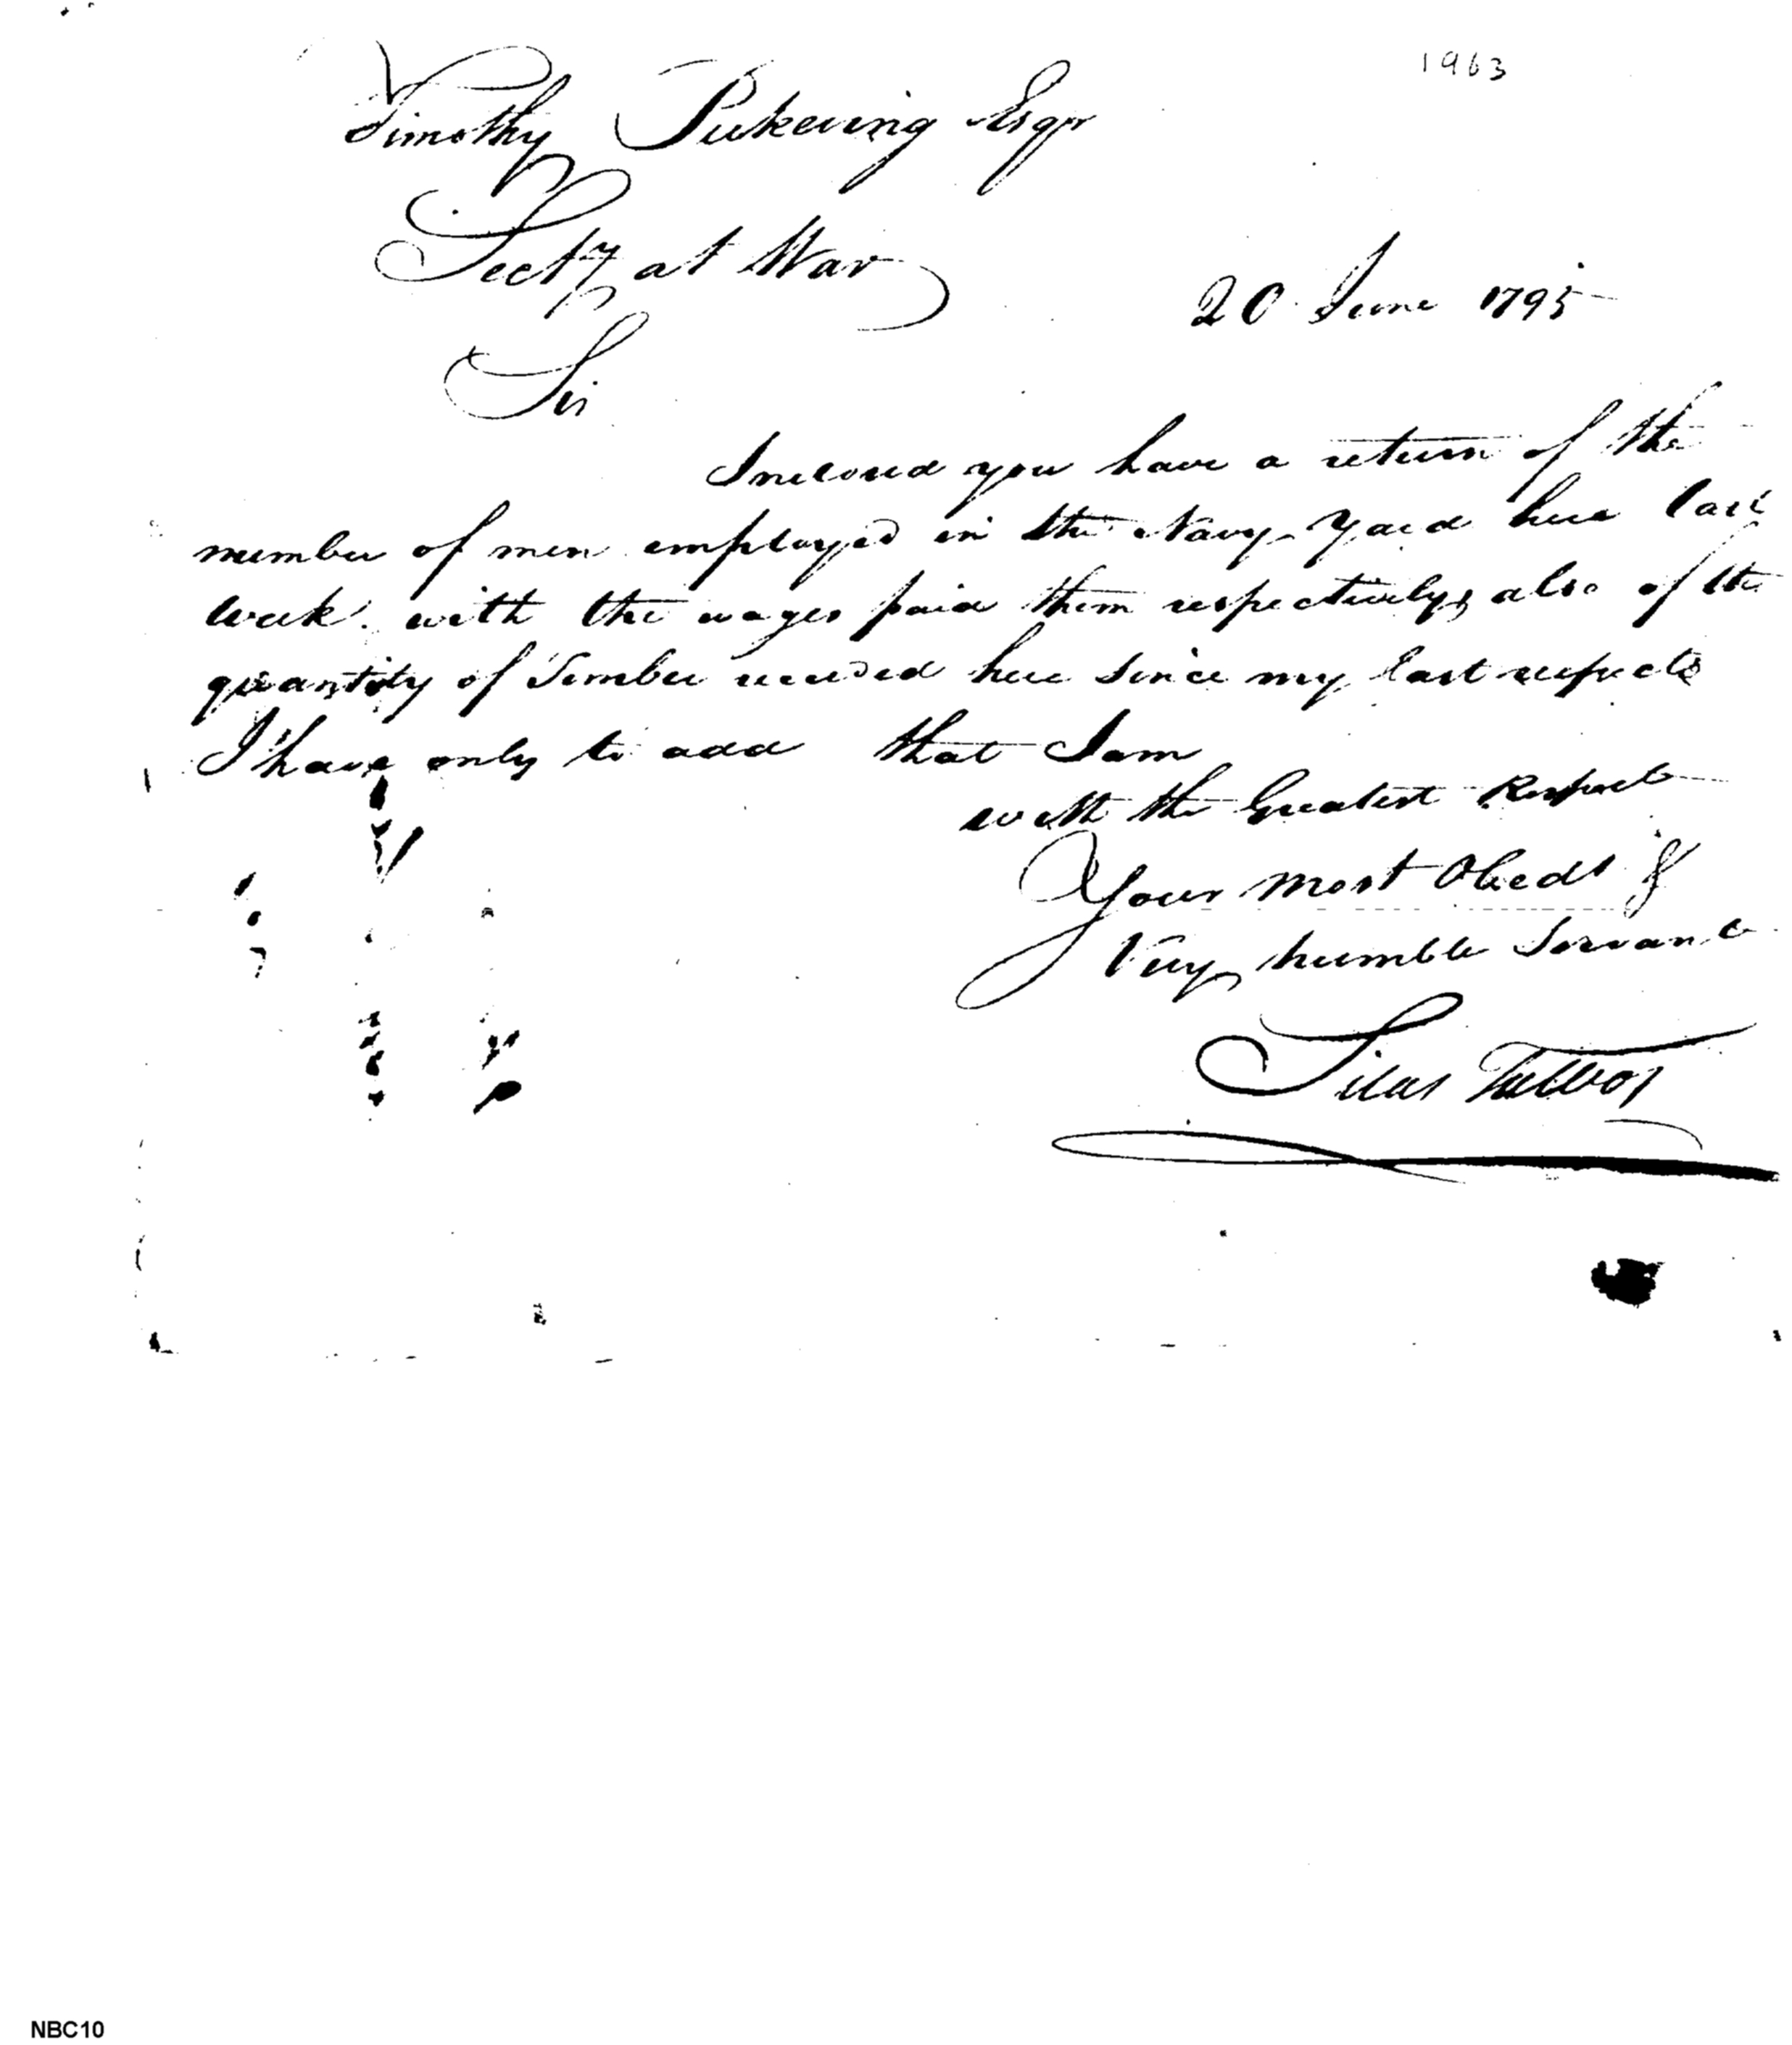 1963
Timothy Pickering Esqr
Secty at War
20 June 1795
Sir
Inclosed you have a return of the
number of men employed in the Navy Yard here last
week with the wages paid them respectively, also of the
quantity of Timber received here since my last respects
I have only to add that I am
with the Greatest Respect
Your most Obedt &
Very humble Servant
Silas Talbot
NBC10